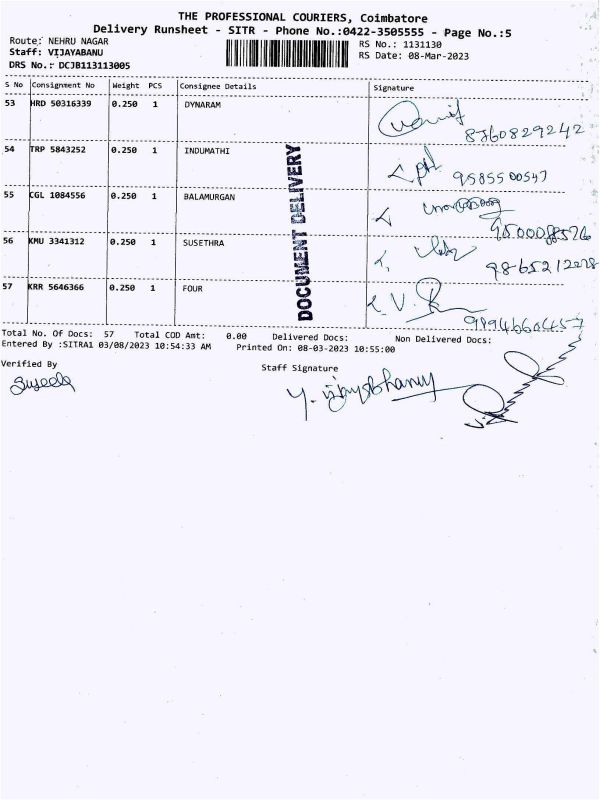 THE PROFESSIONAL COURIERS, Coimbatore
Delivery Runsheet - SITR - Phone No.:0422-3505555 - Page No.:5
Route: NEHRU NAGAR
RS No.: 1131130
Staff: VIJAYABANU
RS Date: 08-Mar-2023
DRS No.: DCJB113113005
S No Consignment No Weight PCS Consignee Details Signature
53 HRD 50316339 0.250 1 DYNARAM
8760829242
54 TRP 5843252 0.250 1 INDUMATHI
9585500547
55 CGL 1084556 0.250 1 BALAMURGAN
56 KMU 3341312 0.250 1 SUSETHRA
57 KRR 5646366 0.250 1 FOUR
DOCUMENT DELIVERY
Total No. Of Docs: 57 Total COD Amt: 0.00 Delivered Docs: Non Delivered Docs:
Entered By :SITRA1 03/08/2023 10:54:33 AM Printed On: 08-03-2023 10:55:00
Verified By
Staff Signature
Suseela